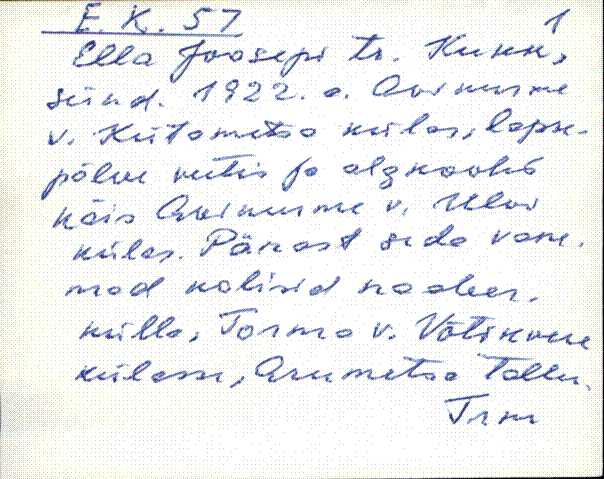 E. K. 57 1
Ella Joosepi tr. Kukk,
sünd. 1922. a. Avinurme
v. Kiitametsa külas, lapse-
põlve veetis ja algkoolis
käis Avinurme v. Ulvi
külas. Pärast seda vane-
mad kolisid naaber-
külla, Torma v. Võtikvere
külasse, Arumetsa tallu.
Trm